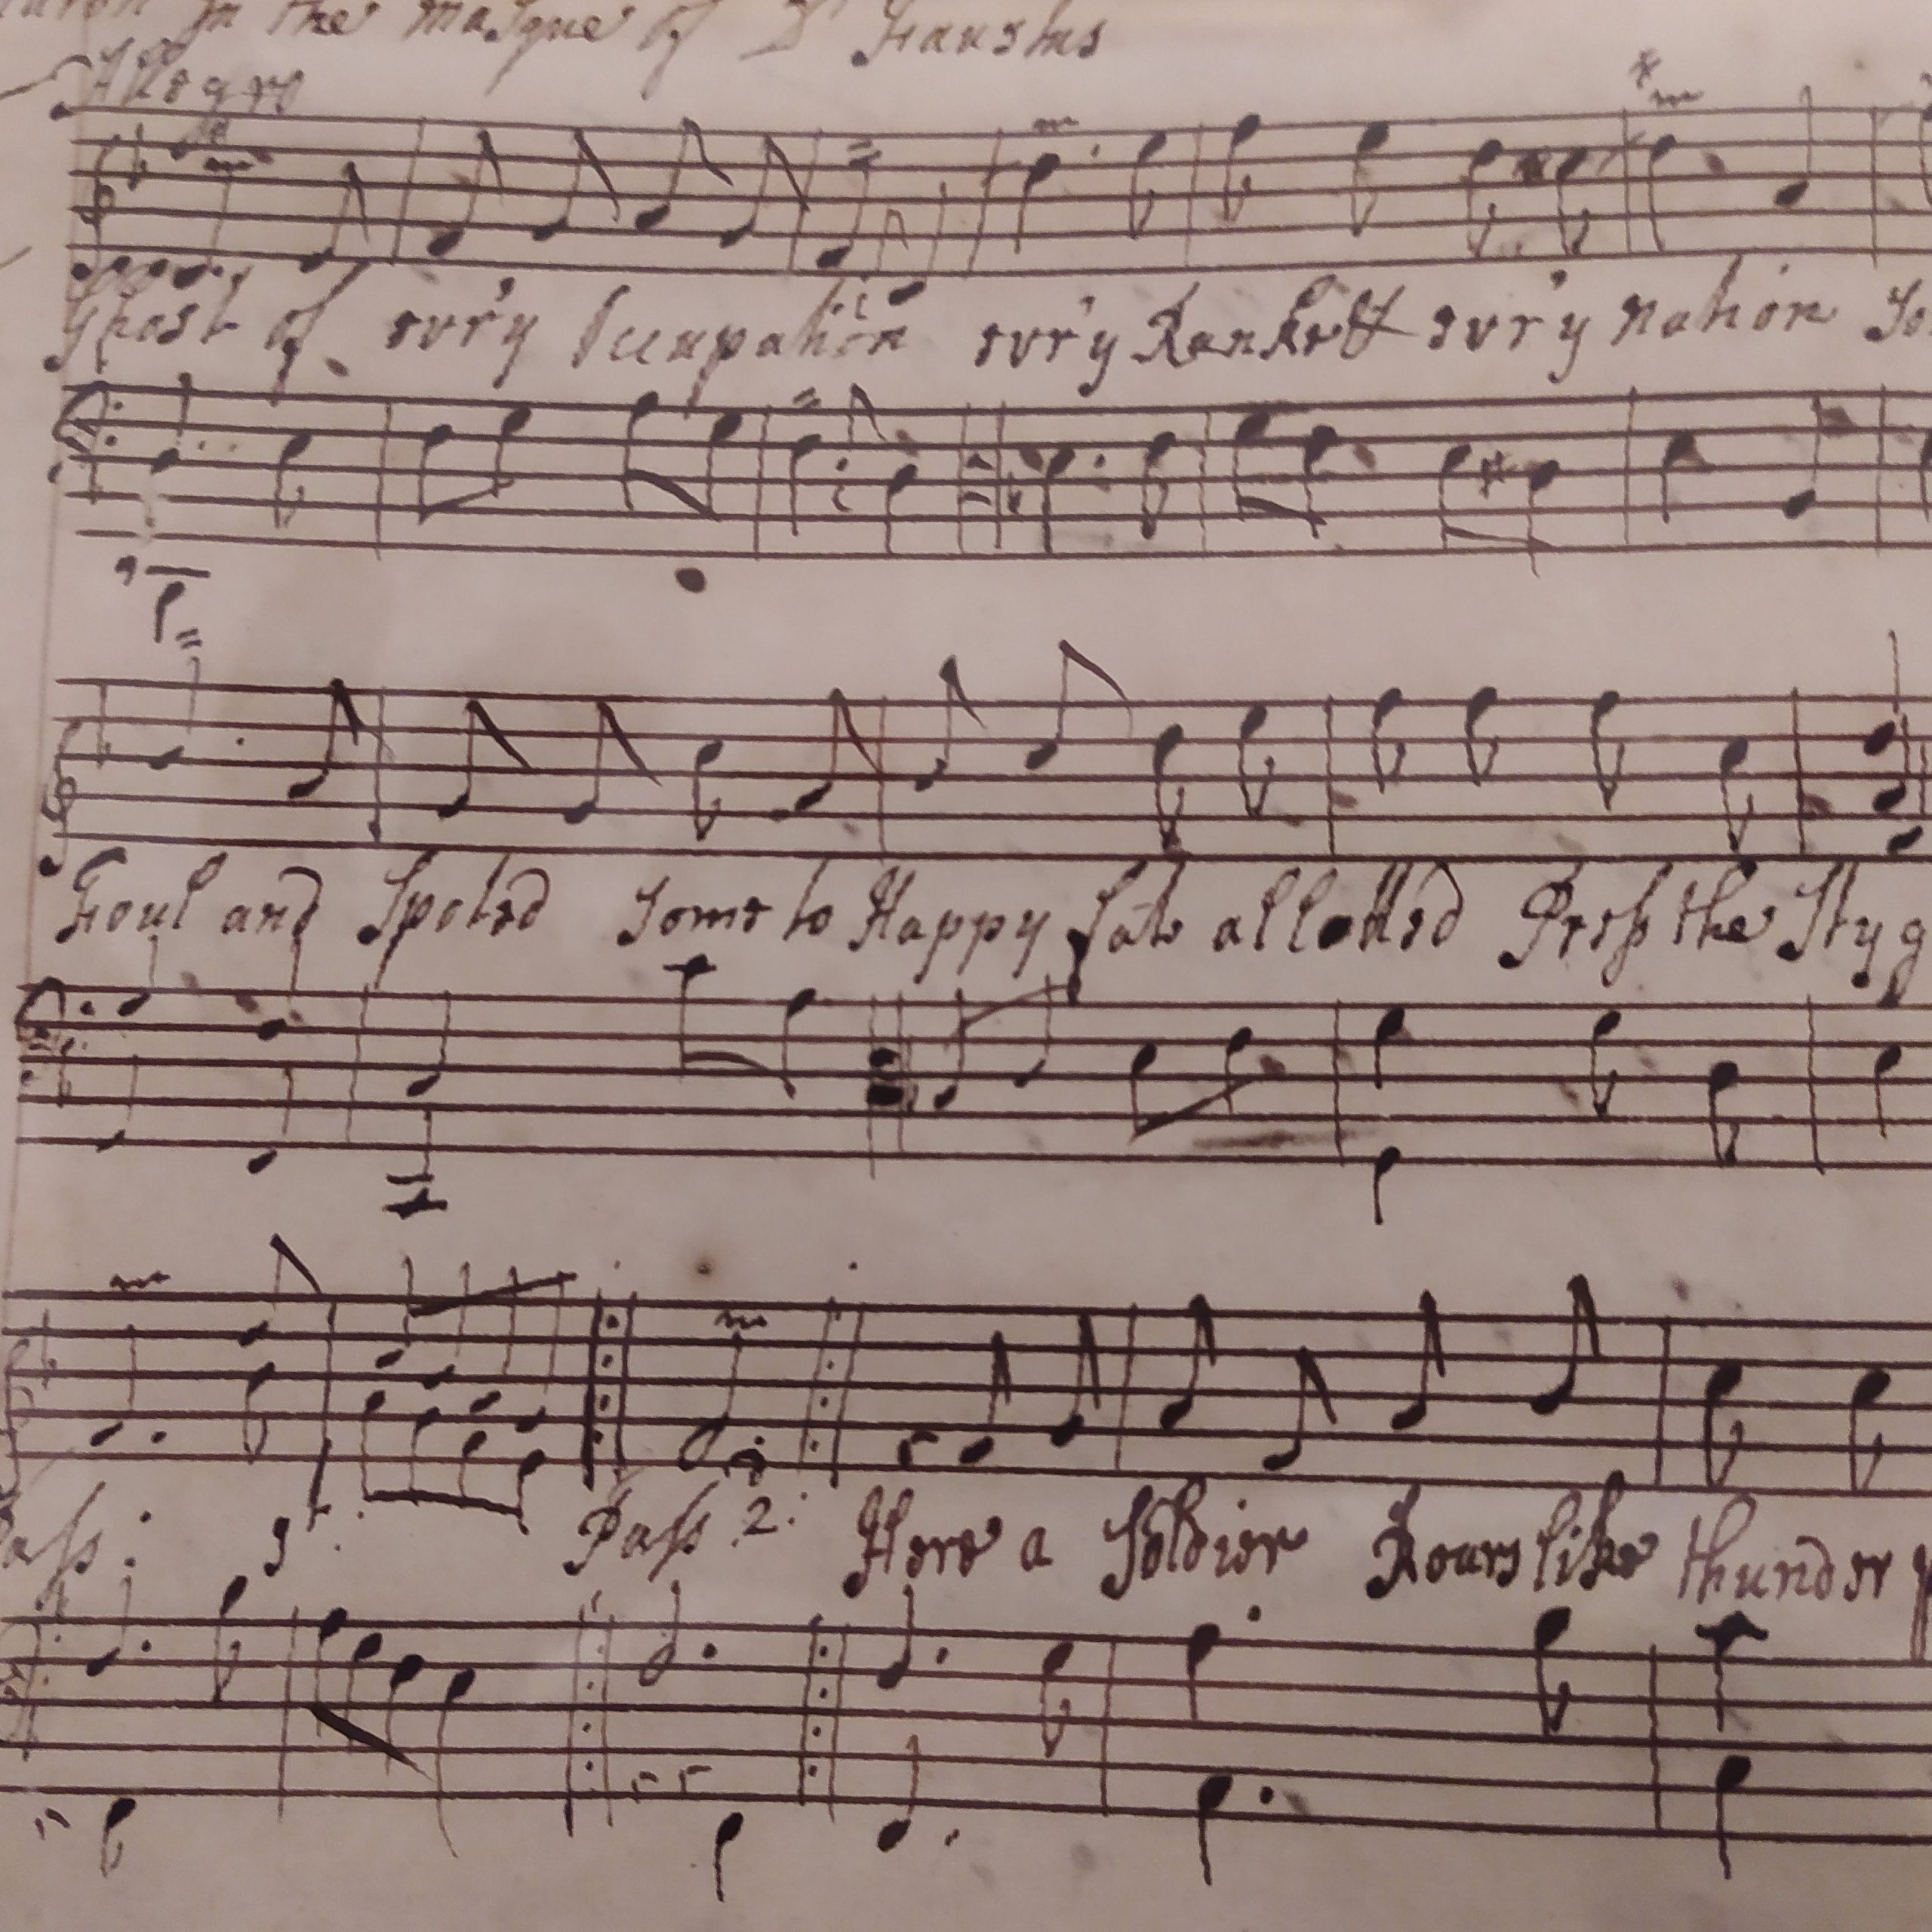 in the Masque of Dr Faustus
Allegro
Ghost of evr'y Occupation evr'y Rank & evr'y nation So
Foul and Spoted Some to Happy fate allotted Press the Styg
Pass: 1st. Pass 2: Here a Soldier Roars like thunder